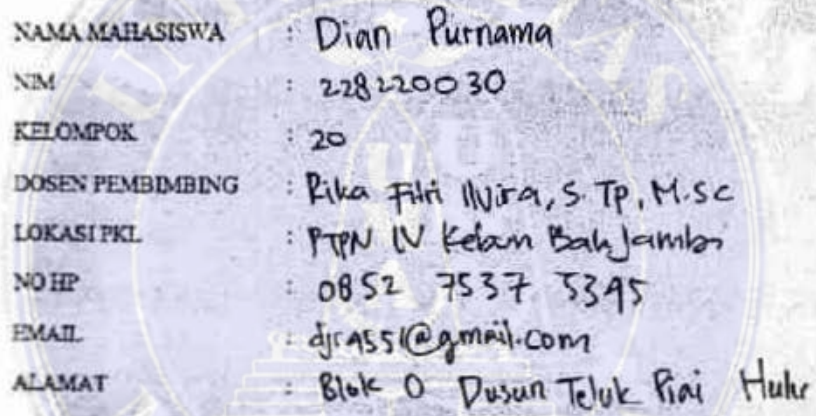 NAMA MAHASISWA : Dian Purnama
NIM : 228220030
KELOMPOK : 20
DOSEN PEMBIMBING : Rika Fitri Ilvira, S.Tp, M.Sc
LOKASI PKL : PTPN IV Kebun Bah Jambi
NO HP : 0852 7537 5395
EMAIL : @gmail.com
ALAMAT : Blok O Dusun Teluk Piai Hulu